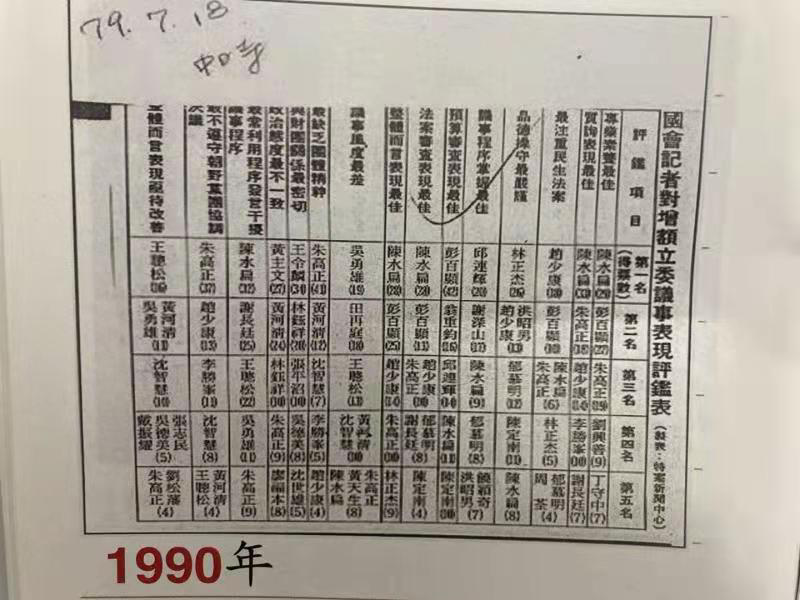 79.7.18
中時
國會記者對增額立委議事表現評鑑表(製表:特案新聞中心)
評鑑項目 第一名(得票數) 第二名 第三名 第四名 第五名
專業素養最佳 陳水扁(29) 彭百顯(27) 朱高正(19) 劉興善(9) 丁守中(7)
質詢表現最佳 陳水扁(33) 朱高正(18) 趙少康(14) 李勝峯(10) 謝長廷(7)
最注重民生法案 趙少康 彭百顯(10) 陳水扁 朱高正(6) 林正杰(5) 郁慕明 周荃(4)
品德操守最嚴謹 林正杰(26) 洪昭男 趙少康(13) 郁慕明(12) 陳定南(11) 陳水扁(8)
議事程序掌握最佳 邱連輝(20) 謝深山(17) 陳水扁(9) 郁慕明(8) 饒穎奇 洪昭男(7)
預算審查表現最佳 彭百顯(42) 翁重鈞(16) 邱連輝(14) 陳水扁(11) 陳定南(10)
法案審查表現最佳 陳水扁(28) 彭百顯(11) 趙少康 朱高正(10) 郁慕明 謝長廷(8) 陳定南(4)
整體而言表現最佳 陳水扁(28) 彭百顯(25) 趙少康(14) 朱高正(10) 林正杰(9)
議事風度最差 吳勇雄(19) 田再庭(18) 王聰松(13) 黃河清 沈智慧(10) 朱高正 黃天生 陳水扁(8)
最缺乏團體精神 朱高正(41) 黃河清(12) 沈智慧(7) 李勝峯(5) 趙少康(4)
與財團關係最密切 王令麟(34) 林鈺祥(20) 張平沼(10) 吳德美(8) 沈世雄(5)
政治態度最不一致 黃主文(27) 黃河清(24) 林鈺祥(10) 朱高正(9) 廖福本(8)
最常利用程序發言干擾議事程序 陳水扁(32) 謝長廷(25) 王聰松(22) 吳勇雄(11) 朱高正(9)
最不遵守朝野黨團協調決議 朱高正(37) 趙少康(13) 李勝峯(11) 沈智慧(8) 黃河清 王聰松(4)
整體而言表現亟待改善 王聰松(16) 黃河清 吳勇雄(11) 沈智慧(10) 張志民 吳德美(5) 戴振耀 劉松藩 朱高正(4)
1990年